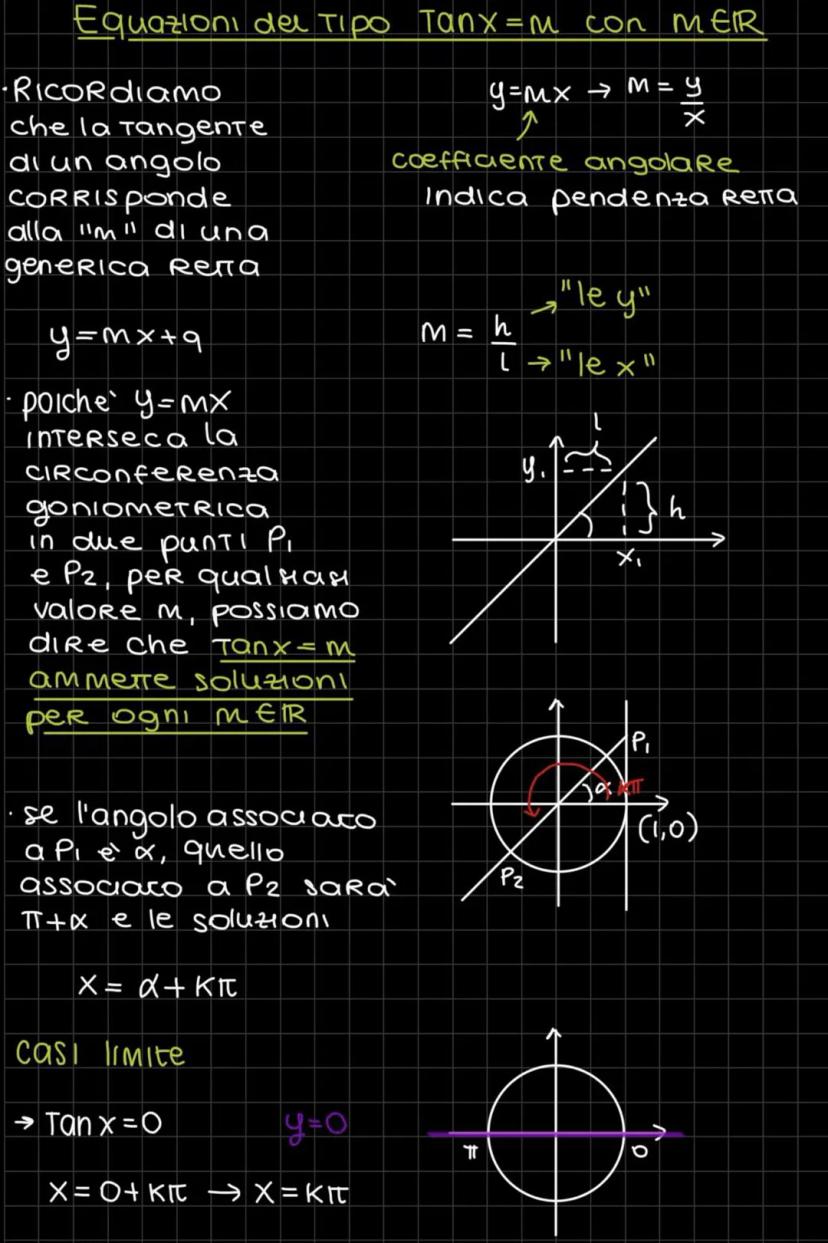 Equazioni del tipo Tanx=m con m∈R
·Ricordiamo
che la tangente
di un angolo
corrisponde
alla "m" di una
generica retta
y=mx+q
y=mx → m = y/x
coefficiente angolare
Indica pendenza retta
m = h/l
→ "le y"
→ "le x"
· poichè y=mx
interseca la
circonferenza
goniometrica
in due punti P₁
e P₂, per qualsiasi
valore m, possiamo
dire che Tanx=m
ammette soluzioni
per ogni m∈R
l
y₁
h
x₁
P₁
α
kπ
(1,0)
P₂
· se l'angolo associato
a P₁ è α, quello
associato a P₂ sarà
π+α e le soluzioni
x= α+kπ
casi limite
→ Tan x=0
y=0
x=0+kπ → x=kπ
π
0